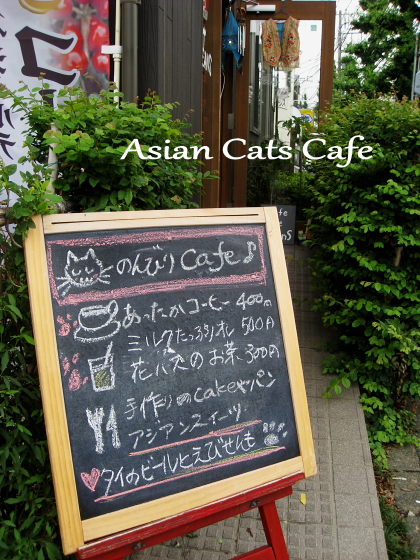 Asian Cats Cafe
のんびり Cafe♪
あったかコーヒー 400円
ミルクたっぷりオレ 500円
花ハスのお茶 300円
手作りのcakeやパン
アジアンスイーツ
タイのビールとえびせんも